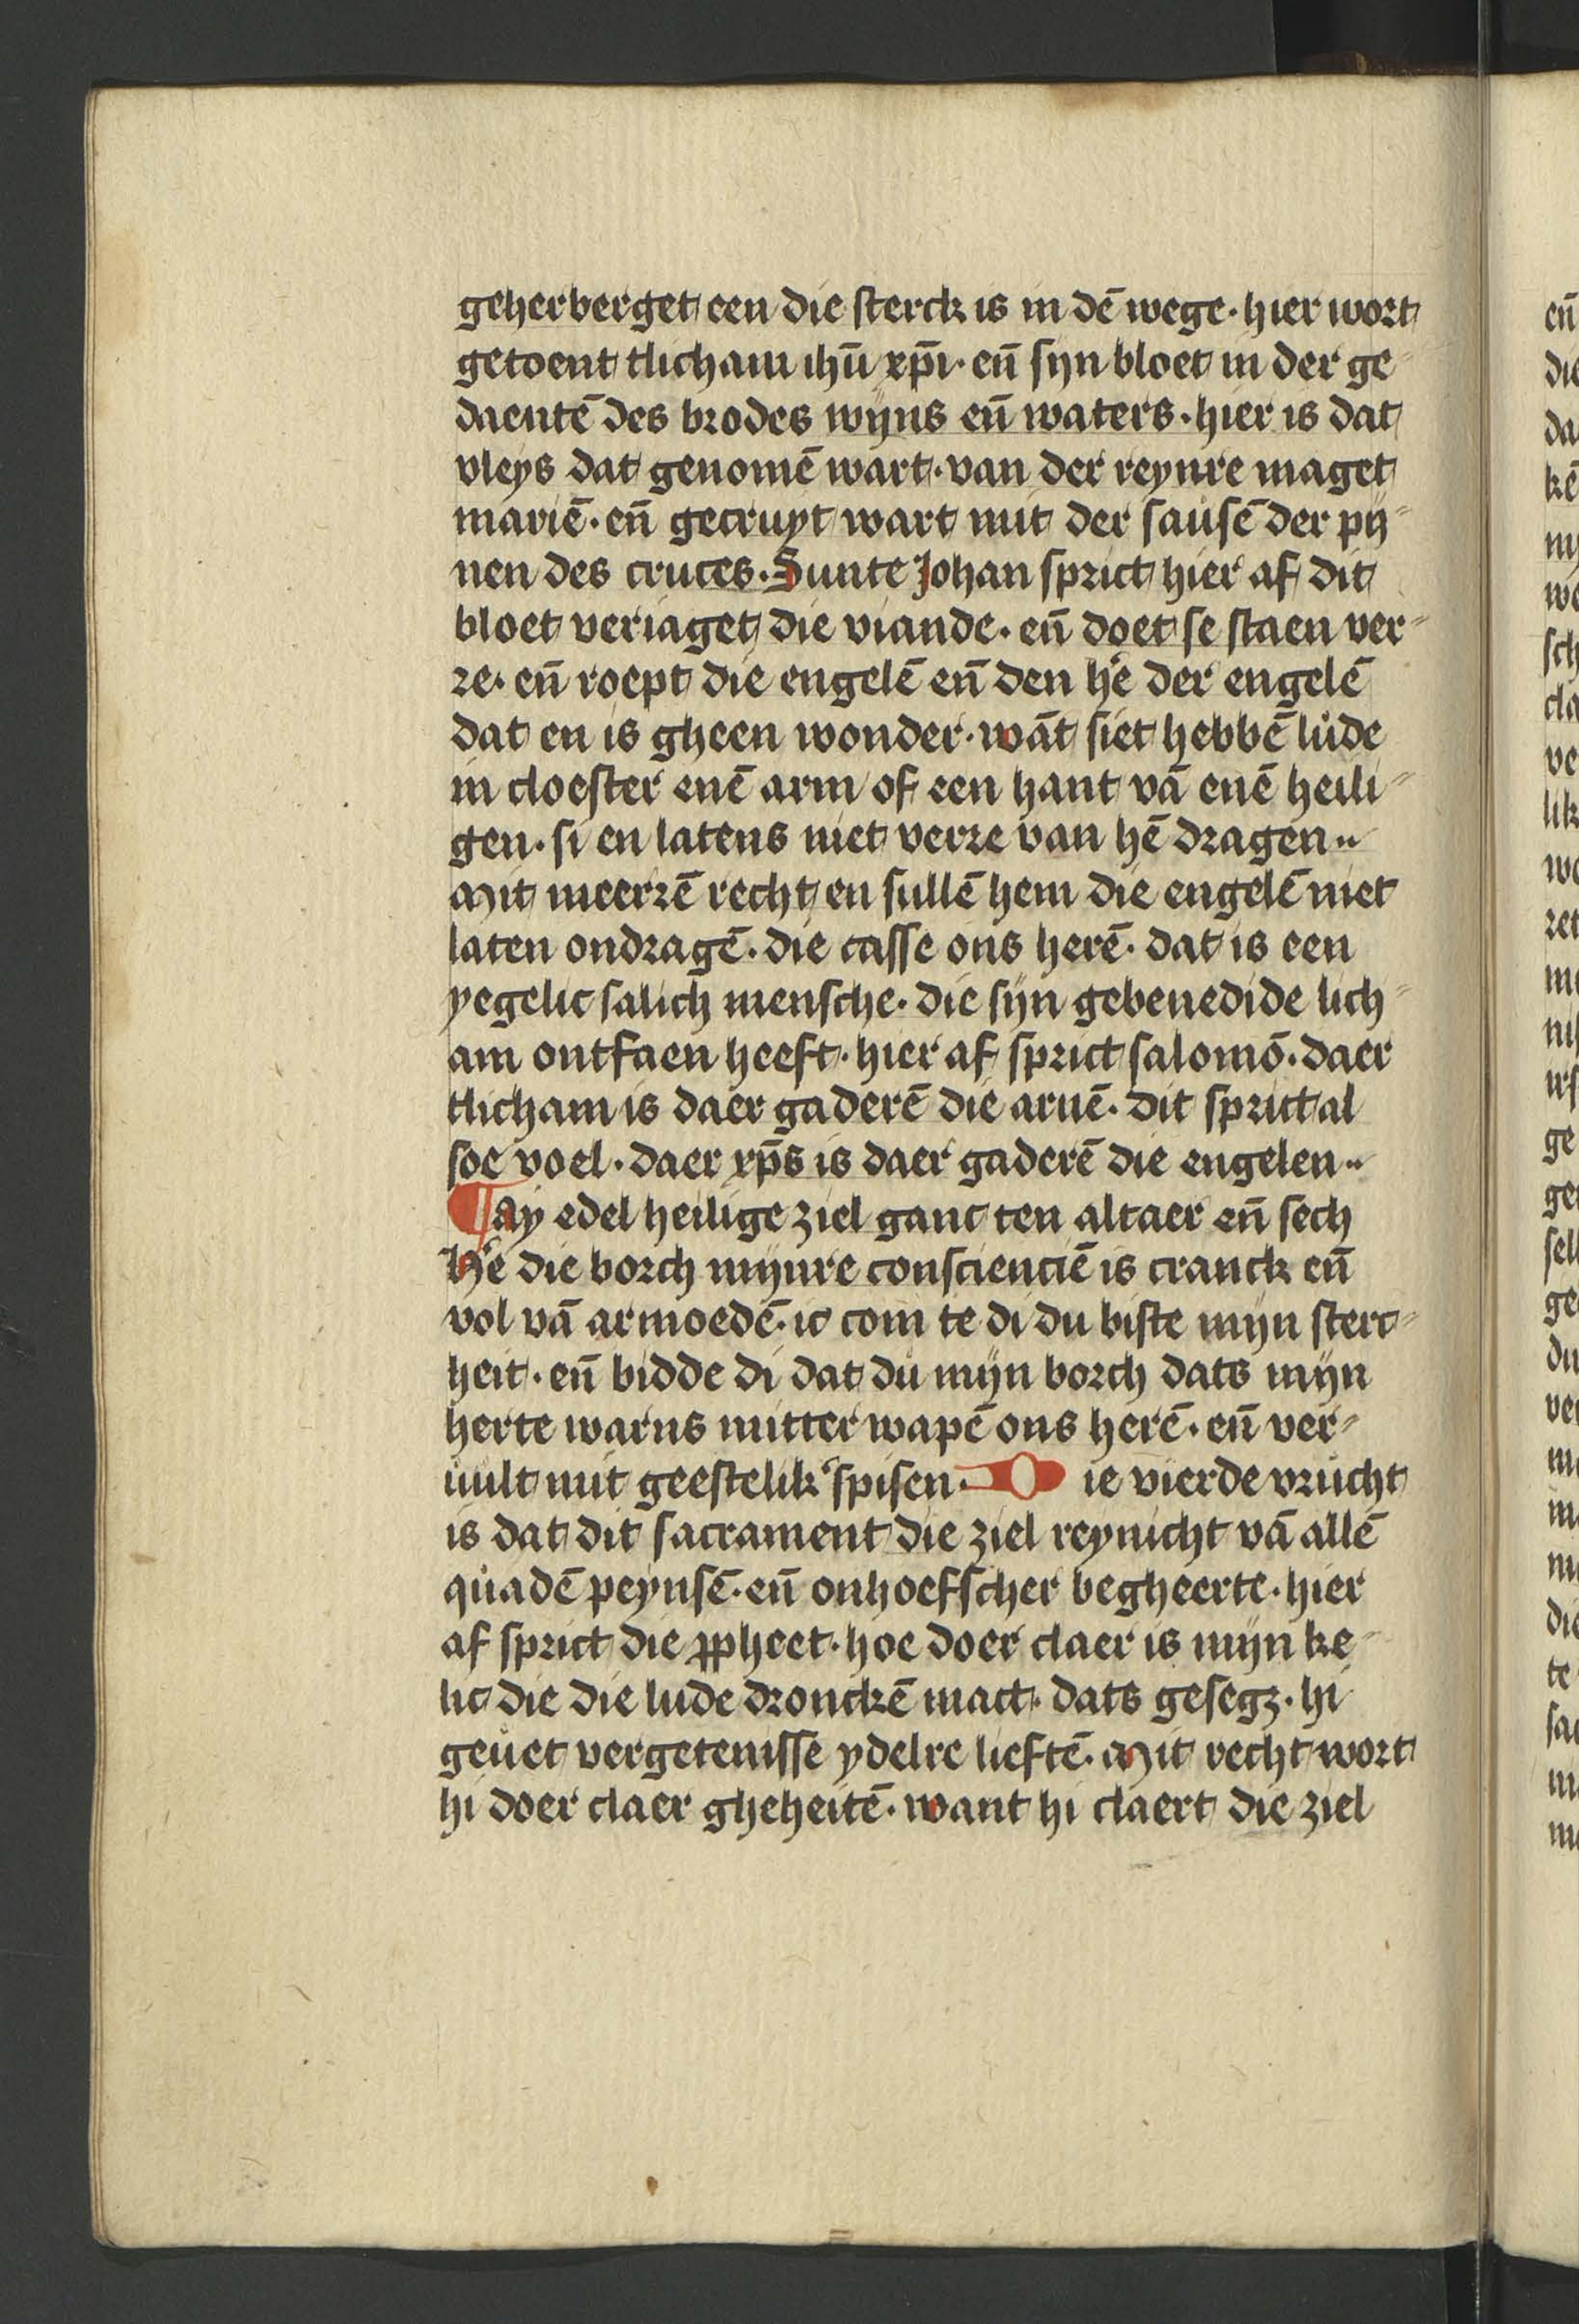 geherberget een die sterck is in dē wege · hier wort
getoent tlicham ihū xp̄i · eñ sijn bloet in der ge-
daentē des brodes wijns eñ waters · hier is dat
vleys dat genomē wart · van der reynre maget
mariē · eñ gecruyt wart mit der sausē der pij-
nen des cruces · Sunte Johan sprict hier af dit
bloet veriaget die viande · eñ doet se staen ver-
re · eñ roept die engelē eñ den he͛ der engelē
dat en is gheen wonder · wāt siet hebbē lude
in cloester enē arm of een hant vā enē heili-
gen · si en latens niet verre van hē dragen ··
Mit meerrē recht en sullē hem die engelē niet
laten ondragē · die casse ons herē · dat is een
yegelic salich mensche · die sijn gebenedide lich-
am ontfaen heeft · hier af sprict salomō · daer
tlicham is daer gaderē die arnē · dit sprict al
soe voel · daer xp̄s is daer gaderē die engelen ··
¶ ay edel heilige ziel ganc ten altaer eñ sech
He͛ die borch mijnre conscienciē is cranck eñ
vol vā armoedē · ic com te di du biste mijn sterc-
heit · eñ bidde di dat du mijn borch dats mijn
herte warns mitter wapē ons herē · eñ ver-
uult mit geestelik͛ spisen · D ie vierde vrucht
is dat dit sacrament die ziel reynicht vā allē
quadē peynsē · eñ onhoefscher begheerte · hier
af sprict die ꝓpheet · hoe doer claer is mijn ke-
lic die die lude dronckē mact · dats gesegz · hi
geuet vergetenisse ydelre lieftē · Mit recht wort
hi doer claer gheheitē · want hi claert die ziel